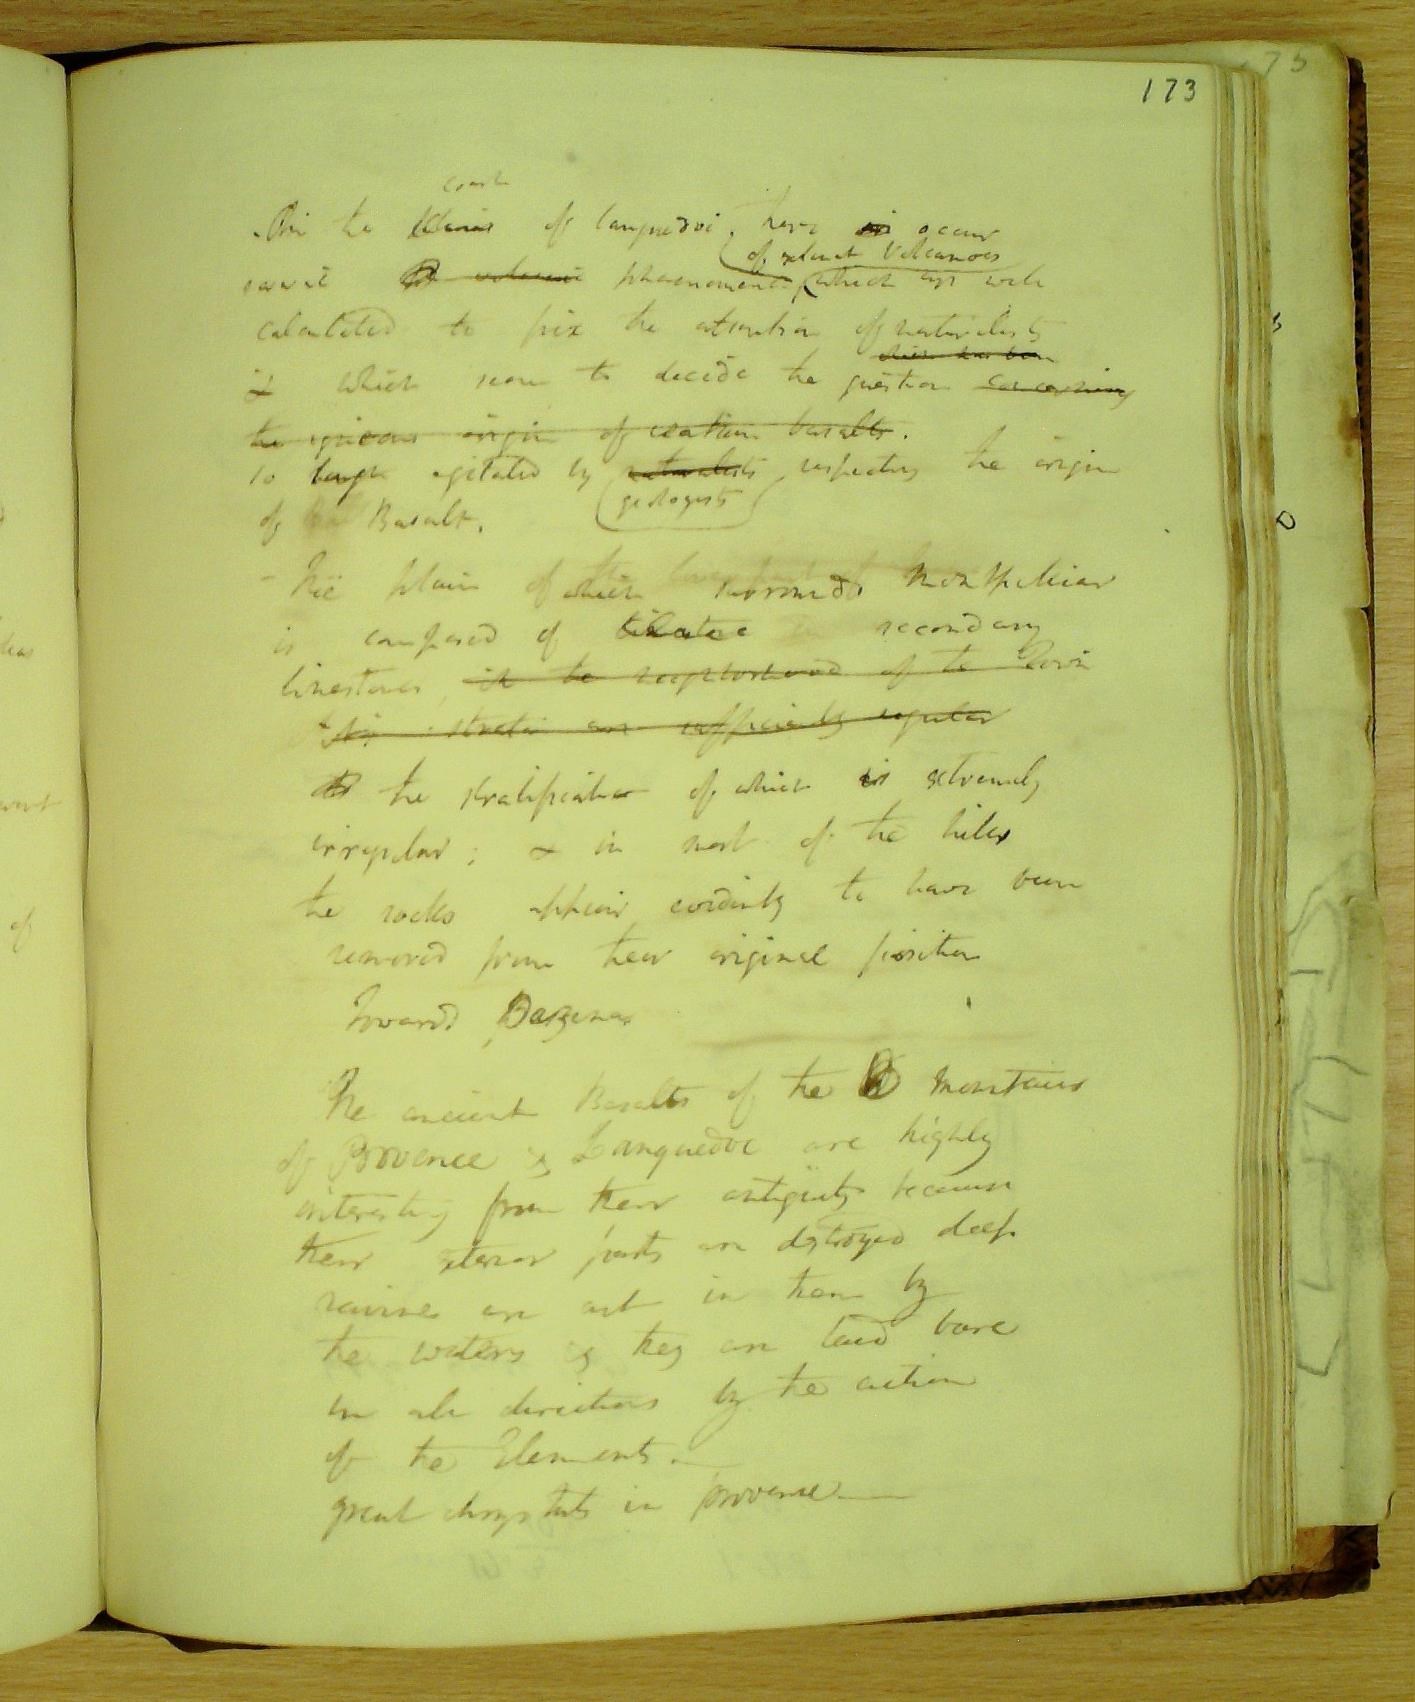 173
coast
On the plains of Languedoc, there is occur
of extinct Volcanoes
several volcanic phaenomena which are well
calculated to fix the attention of naturalists
which has been
& which seem to decide the question concerning
the igneous origin of certain basalts.
so long agitated by naturalists respecting the origin
geologists
of Basalt.
- The plain of which surrounds Montpelier
is composed of secondary
limestones, in the neighborhood of the Town
strata are sufficiently regular
the stratification of which is extremely
irregular; & in most of the hills
the rocks appear evidently to have been
removed from their original position
Towards Pezenas
The ancient Basalts of the mountains
of Provence & Languedoc are highly
interesting from their antiquity because
their exterior parts are destroyed deep
ravines are cut in them by
the waters & they are laid bare
in all directions by the action
of the Elements.
great chrystals in Provence